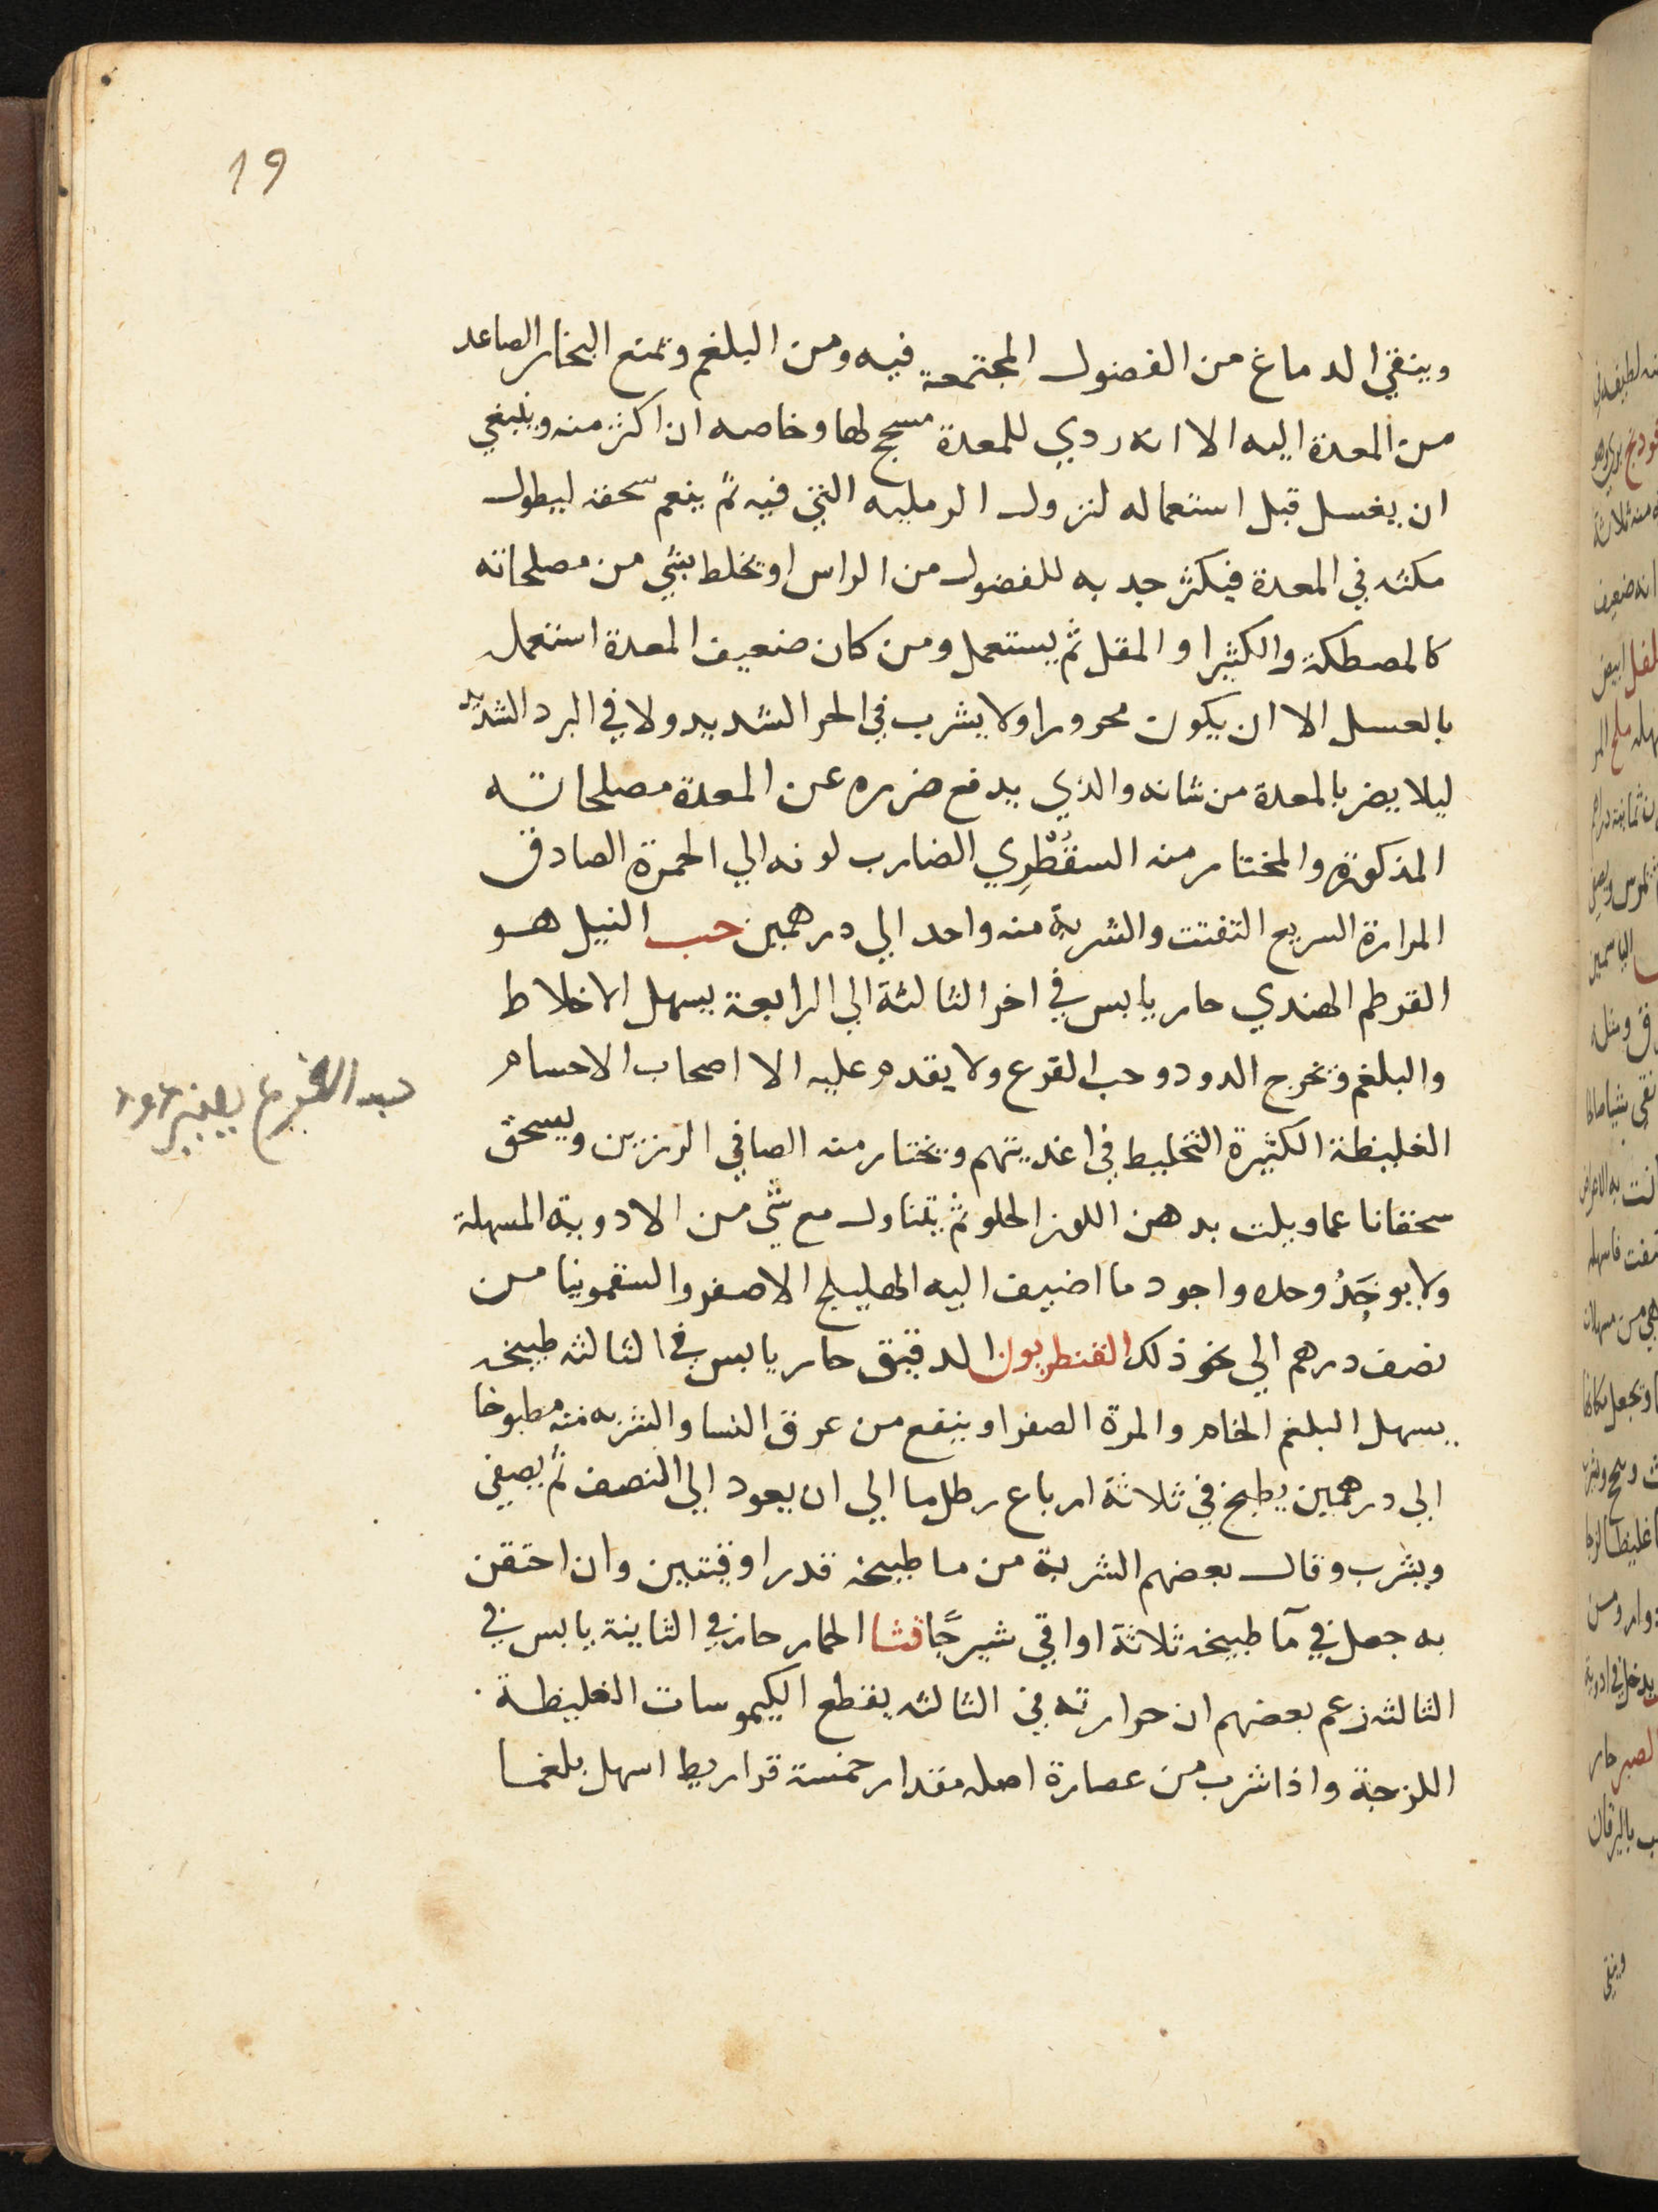 19
وينقي الدماغ من الفضول المجتمعة فيه ومن البلغم وتمنع البخار الصاعد
من المعدة اليه الا انه ردي للمعدة مسحج لها وخاصه ان اكثر منه وينبغي
ان يغسل قبل استعماله لنزول الرمليه التي فيه ثم ينعم سحقه ليطول
مكثه في المعدة فيكثر جدبه للفضول من الراس او تخلط بشي من مصلحاته
كالمصطكة والكثيرا والمقل ثم يستعمل ومن كان ضعيف المعدة استعمل
بالعسل الا ان يكون محرورا ولا يشرب في الحر الشديد ولا في البرد الشديد
ليلا يضر بالمعدة من شانه والذي يدفع ضرره عن المعدة مصلحاته
المذكورة والمختار منه السقُطْرِي الضارب لونه الي الحمرة الصادق
المرارة السريع التفتت والشربة منه واحد الي درهمين حب النيل هو
القرطم الهندي حار يابس في اخر الثالثة الي الرابعة يسهل الاخلاط
والبلغم وتخرج الدود وحب القرع ولا يقدم عليه الا اصحاب الاحسام
الغليظة الكثيرة التخليط في اغديتهم وتختار منه الصافي الرزين ويسحق
سحقانا عما ويلت بدهن اللوز الحلو ثم يتناول مع شي من الادوية المسهلة
ولا يوخَدُ وحده واجود ما اضيف اليه الهليلج الاصفر والسقمونيا من
نصف درهم الي نحو ذلك القنطريون الدقيق حار يابس في الثالثه طبيخه
يسهل البلغم الخام والمرة الصفرا وينفع من عرق النسا والشربه منه مطبوخا
الي درهمين يطبخ في ثلاثة ارباع رطل ما الي ان يعود الي النصف ثم يصفي
ويشرب وقال بعضهم الشربة من ما طبيخه قدر اوقيتين وان احتقن
به جعل في مآ طبيخه ثلاثة اواقي شيرجًا قثا الحمار حار في الثانية يابس في
الثالثه زعم بعضهم ان حرارته في الثالثه يقطع الكيموسات الغليظة
اللزجة واذا شرب من عصارة اصله مقدار خمسة قراريط اسهل بلغما